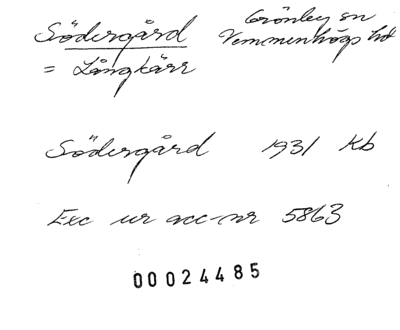 Södergård
Grönby sn
Vemmenhögs hd
= Långkärr
Södergård 1931 Kb
Exc ur acc-nr 5863
00024485